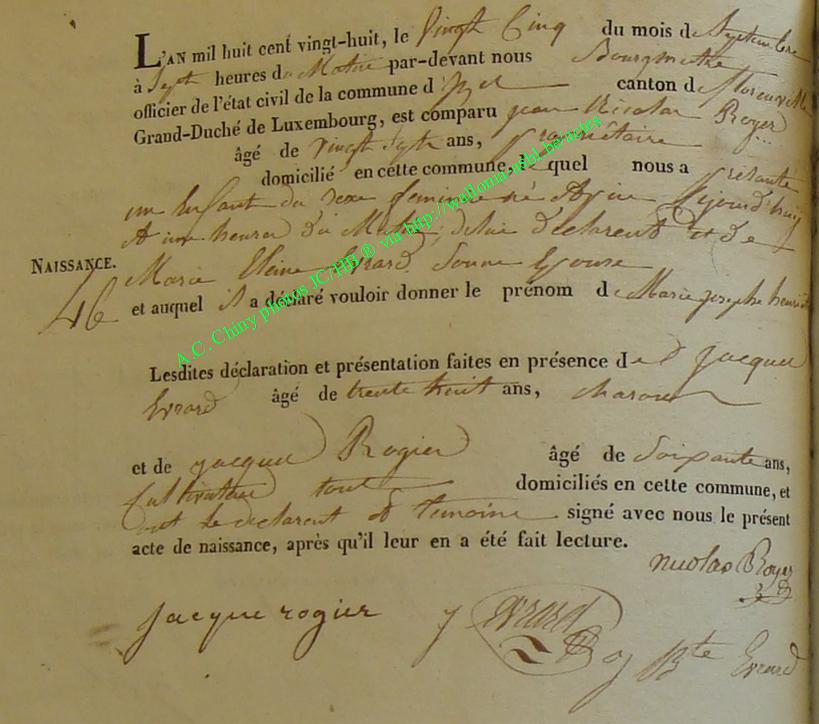 L'AN mil huit cent vingt-huit, le Vingt Cinq du mois de Septembre
à Sept heures du Matin par-devant nous Bourgmestre
officier de l'état civil de la commune d'Izel canton de Florenville
Grand-Duché de Luxembourg, est comparu jean Nicolas Royer
âgé de vingt Septe ans, Propriétaire
domicilié en cette commune, le quel nous a présenté
un Enfant du sexe feminin né
A une heures du Matin, de lui declarent et de
Marie Eleine Evrard, Sonne Epouse
NAISSANCE.
46
et auquel il a déclaré vouloir donner le prénom de Marie josephe
Lesdites déclaration et présentation faites en présence de Jacques
Evrard âgé de trente huit ans, charon
et de jacques Rogier âgé de Soixante ans,
Cultivateur tout domiciliés en cette commune, et
ont le declarent et temoins signé avec nous le présent
acte de naissance, après qu'il leur en a été fait lecture.
nicolas Royer
jacque rogier j Evrard
j Bte Evrard
A.C. Chiny photos JC7HB ® via http://wallonia-asbl.be/actes